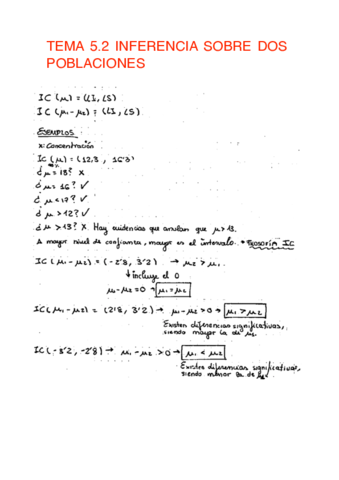 TEMA 5.2 INFERENCIA SOBRE DOS
POBLACIONES
IC (μ) = (LI, LS)
IC (μ₁ - μ₂) = (LI, LS)
EJEMPLOS
x: Concentración
IC (μ) = (12'3, 16'3)
¿μ = 18? x
¿μ = 16? ✓
¿μ < 17? ✓
¿μ > 12? ✓
¿μ > 13? x Hay evidencias que anulan que μ > 13.
A mayor nivel de confianza, mayor es el intervalo.
IC (μ₁ - μ₂) = (-2'8, 3'2) → μ₂ > μ₁.
↓ incluye el 0
μ₁ - μ₂ = 0 → μ₁ = μ₂
IC (μ₁ - μ₂) = (2'8, 3'2) → μ₁ - μ₂ > 0 → μ₁ > μ₂
Existen diferencias significativas,
siendo mayor la de μ₁.
IC (-3'2, -2'8) → μ₁ - μ₂ > 0 → μ₁ < μ₂
Existen diferencias significativas,
siendo menor la de